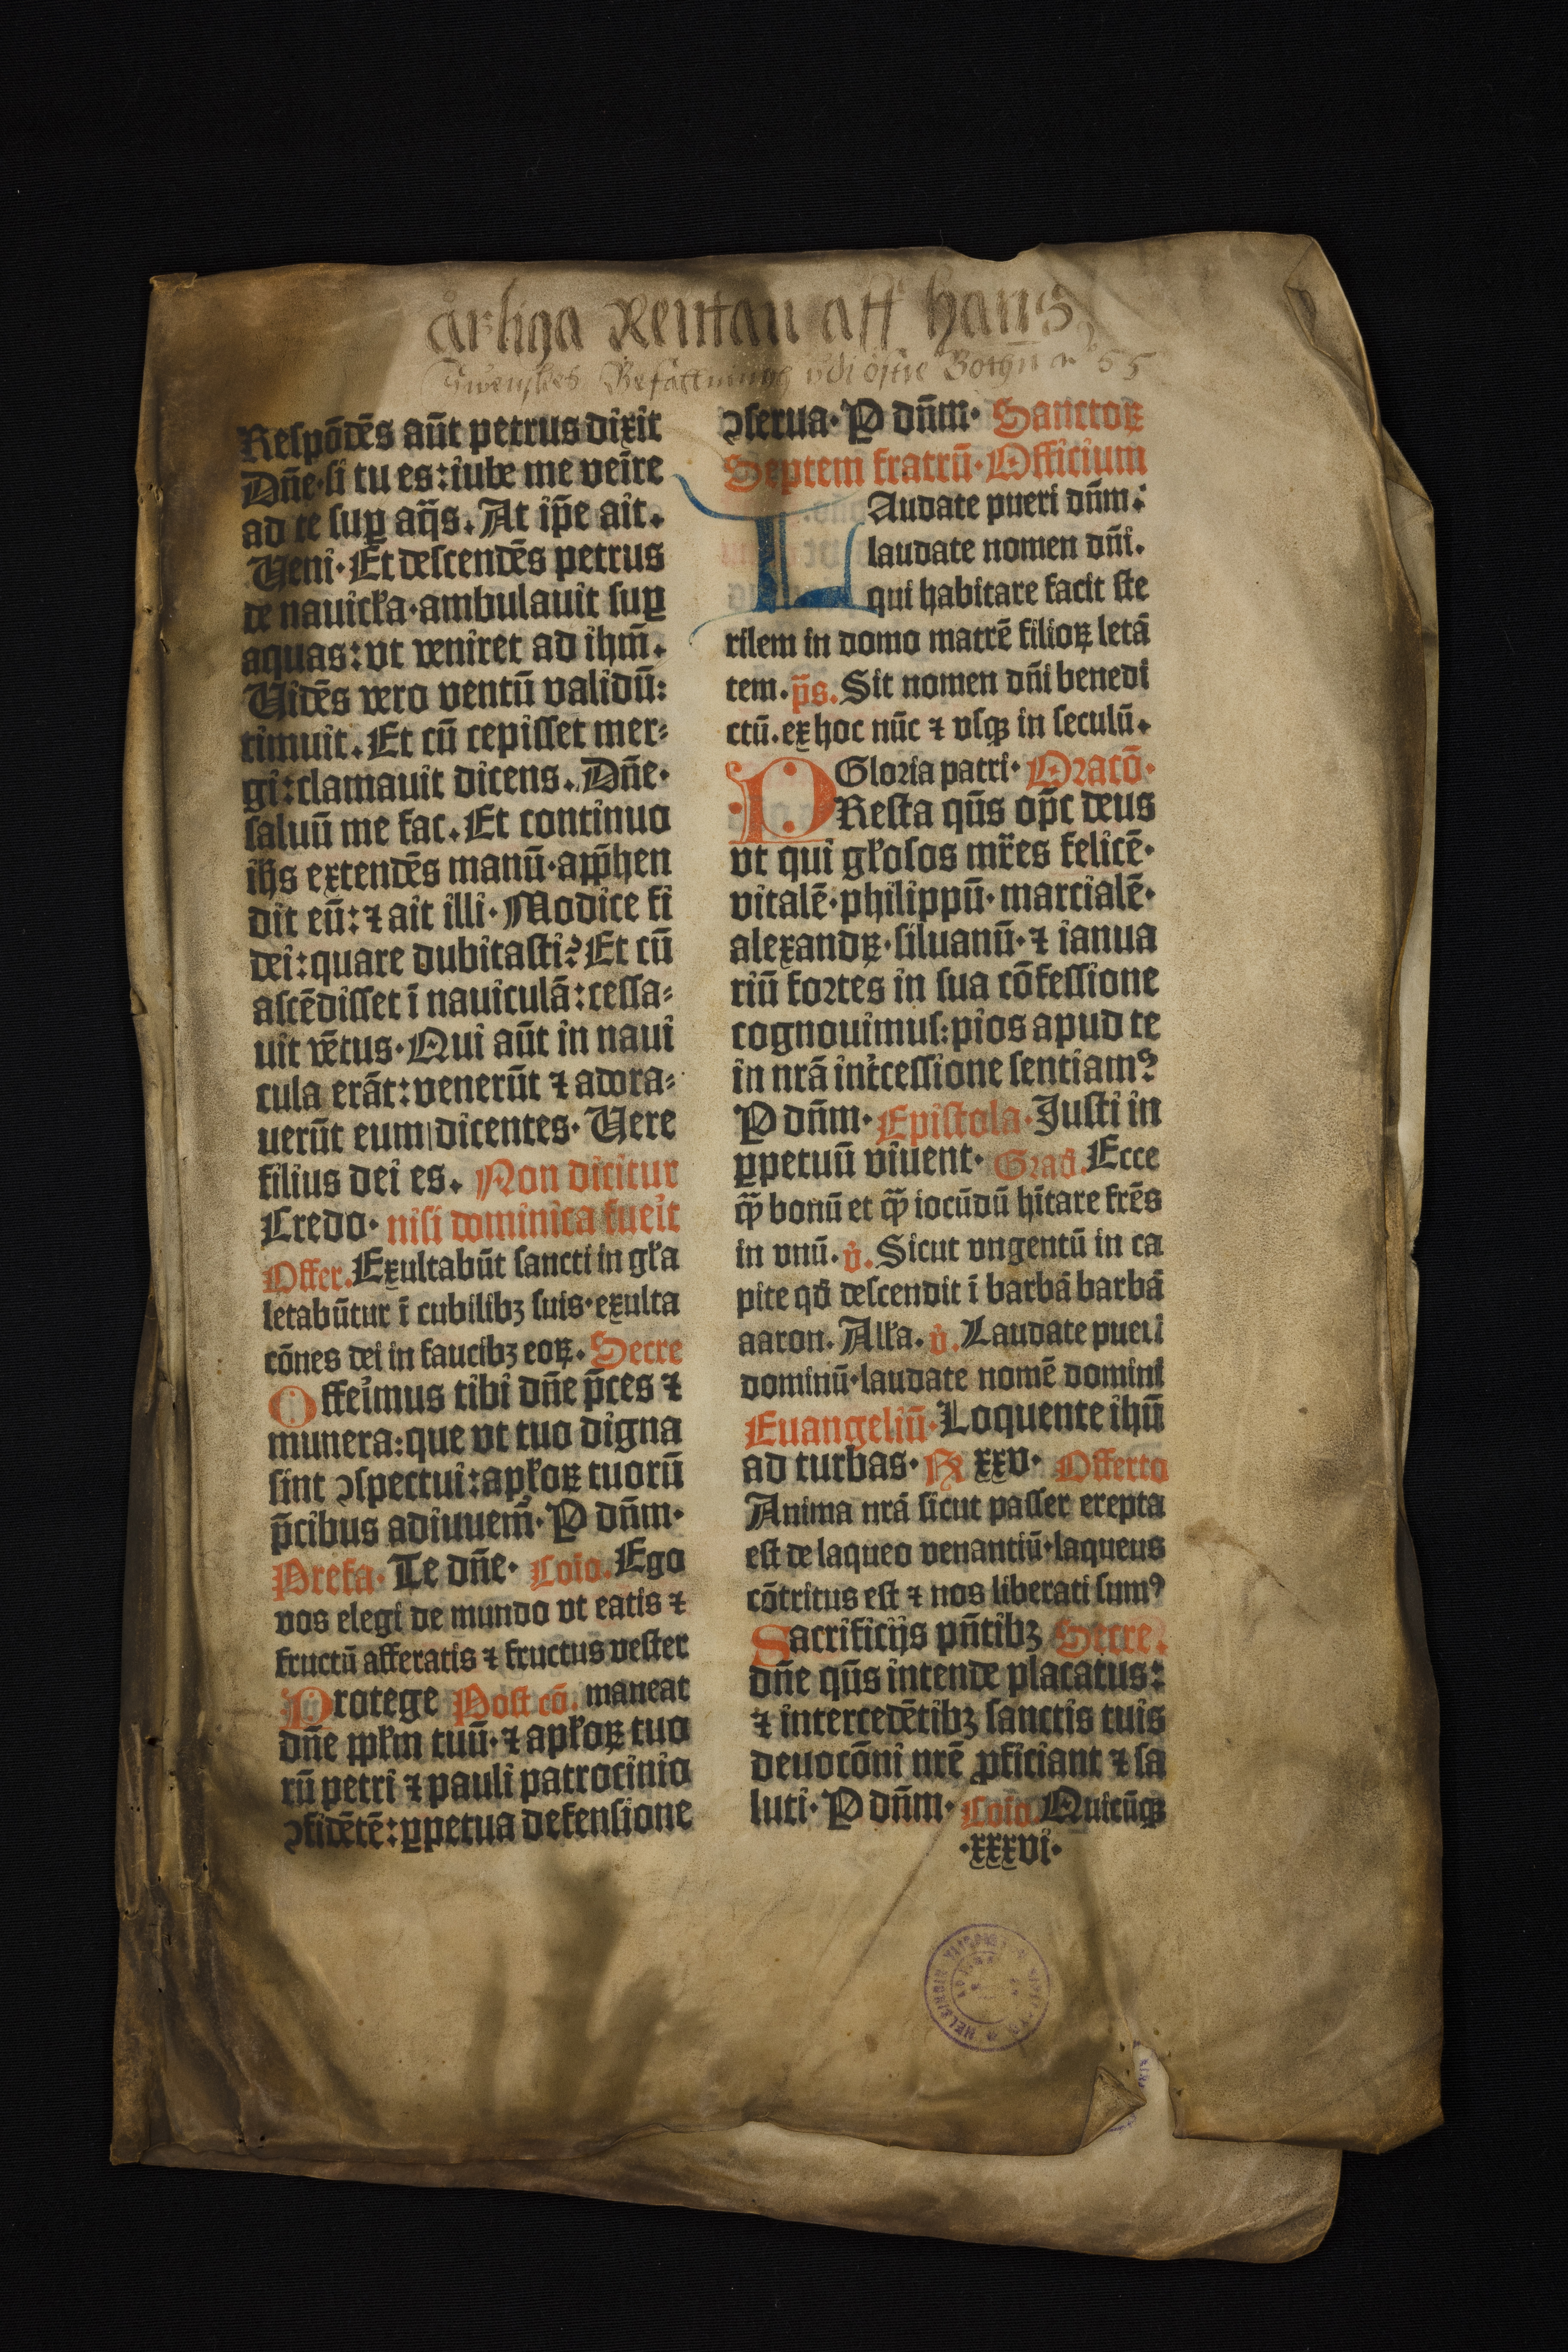 årliga Rentan aff hans
Swenskes Befattning vdi östre Bothn 55
Reſpõdẽs aũt petrus dixit
Dñe·ſi tu es:iube me veĩre
ad te ſuꝑ aq̃s. At ip̃e ait.
Veni·Et deſcendẽs petrus
de nauicl̃a·ambulauit ſuꝑ
aquas:vt veniret ad ihm̃.
Vidẽs vero ventũ validũ:
timuit. Et cũ cepiſſet mer⸗
gi:clamauit dicens. Dñe·
ſaluũ me fac. Et continuo
ihs extendẽs manũ·app̃hen
dit eũ:⁊ ait illi·Modice fi
dei:quare dubitaſti? Et cũ
aſcẽdiſſet ĩ nauiculã:ceſſa⸗
uit vẽtus·Qui aũt in naui
cula erãt:venerũt ⁊ adora⸗
uerũt eum dicentes·Vere
filius dei es. Non dicitur
Credo· niſi dominica fuei̾t
Offer. Exultabũt ſancti in gl̃a
letabũtur ĩ cubilibꝫ ſuis·exulta
cõnes dei in faucibꝫ eoꝝ. Secre
Offei̾mus tibi dñe p̃ces ⁊
munera:que vt tuo digna
ſint ↄſpectui:apl̃oꝝ tuorũ
p̃cibus adiuuem̃·P dñm·
Prefa· Te dñe· Coĩo. Ego
vos elegi de mundo vt eatis ⁊
fructũ afferatis ⁊ fructus veſter
Protege Poſt cõ. maneat
dñe ppl̃m tuũ·⁊ apl̃oꝝ tuo
rũ petri ⁊ pauli patrocinio
ↄfidẽtẽ:ꝑpetua defenſione
ↄſerua·P dñm· Sanctoꝝ
Septem fratrũ·Officium
LAudate pueri dñm:
laudate nomen dñi.
qui habitare facit ſte
rilem in domo matrẽ filioꝝ letã
tem. p̃s. Sit nomen dñi benedi
ctũ.ex hoc nũc ⁊ vſqꝫ in ſeculũ.
Gloꝛia patri· Oꝛacõ·
PReſta qũs op̃c deus
vt qui gl̃oſos mr̃es felicẽ·
vitalẽ·philippũ·marcialẽ·
alexandꝝ·ſiluanũ·⁊ ianua
riũ foꝛtes in ſua cõfeſſione
cognouimuſ:pios apud te
in nrã int̾ceſſione ſentiamꝰ
P dñm· Epiſtola· Iuſti in
ꝑpetuũ viuent· Grad̃. Ecce
qͫ bonũ et qͫ iocũdũ hĩtare frẽs
in vnũ. v̾. Sicut vngentũ in ca
pite qđ deſcendit ĩ barbã barbã
aaron. All̃a. v̾. Laudate pueri
dominũ·laudate nomẽ domini
Euangeliũ· Loquente ihũ
ad turbas· R xxv· Offerto
Anima nrã ſicut paſſer erepta
eſt de laqueo venantiũ·laqueus
cõtritus eſt ⁊ nos liberati ſumꝰ
Sacrificijs pñtibꝫ Secre.
dñe qũs intende placatus:
⁊ intercedẽtibꝫ ſanctis tuis
deuocõni nrẽ ꝓficiant ⁊ ſa
luti·P dñm· Coĩo Quicũqꝫ
·xxxvi·